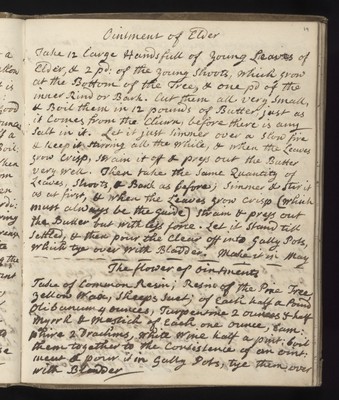 Ointment of Elder
Take 12 Large Handsfull of Young Leaves of
Elder, & 2 pd. of the Young Shoots, which grow
at the Bottom of the Tree, & one pd of the
inner Rind or Bark. Cut them all very Small,
& Boil them in 12 pounds of Butter, just as
it Comes from the Churn before there is any
Salt in it. Let it just simmer over a Slow fire
& keep it stirring all the while, & when the Leaves
grow Crisp, strain it off & press out the Butter
very well. Then take the Same Quantity of
Leaves, Shoots & Bark as before; Simmer & stir it
as at first, & when the Leaves grow Crisp (which
must always be the guide) Strain & press out
the Butter but with less force. Let it Stand till
Settled, & then pour the Clear off into Gally Pots,
which tye over with Bladder. Make it in May
The flower of ointments
Take of Common Resin; Resin of the Pine Tree,
Yellow Wax, Sheeps Suet; of Each half a Pound
Olibanum 4 ounces, Turpentine 2 ounces & half
Myrrh & Mastick of Each one ounce, Cam:
phire 2 Drachms, white Wine half a pint: boil
them together to the Consistence of an oint:
ment & pour it in Gally Pots, tye them over
with Bladder